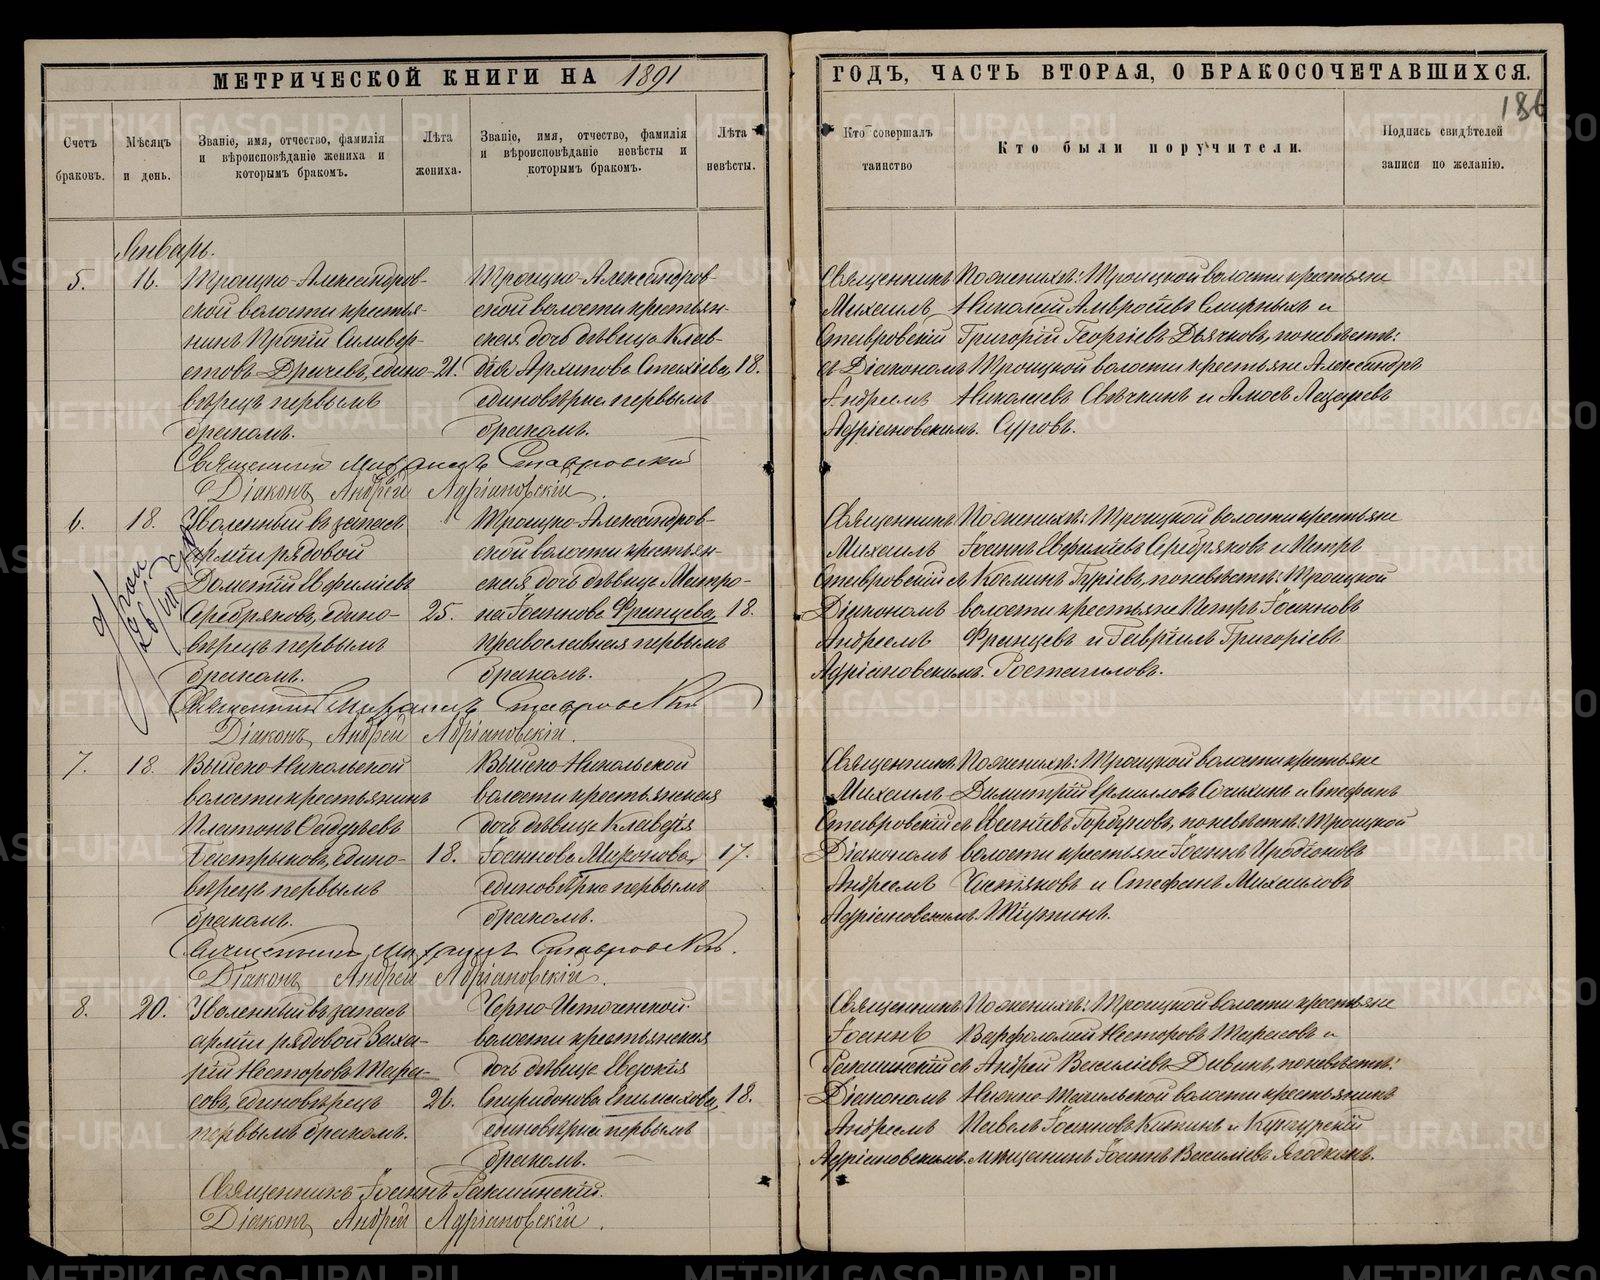 МЕТРИЧЕСКОЙ КНИГИ НА 1891
ГОДЪ, ЧАСТЬ ВТОРАЯ, О БРАКОСОЧЕТАВШИХСЯ.
186
Счетъ браковъ.
Мѣсяцъ и день.
Званіе, имя, отчество, фамилія
и вѣроисповѣданіе жениха и
которымъ бракомъ.
Лѣта жениха.
Званіе, имя, отчество, фамилія
и вѣроисповѣданіе невѣсты и
которымъ бракомъ.
Лѣта невѣсты.
Кто совершалъ таинство
Кто были поручители.
Подпись свидѣтелей
записи по желанію.
Январь.
5.
16.
Троицко-Александров-
ской волости крестья-
нинъ Прокій Сильвер-
стовъ Драчевъ, едино-
вѣрецъ первымъ
бракомъ.
21.
Троицко-Александров-
ской волости крестьян-
ская дочь дѣвица Клав-
дія Архипова Стахіева,
единовѣрка первымъ
бракомъ.
18.
Священникъ
Михаилъ
Ставровскій
съ Діакономъ
Андреемъ
Адріановскимъ.
По женихѣ: Троицкой волости крестьяне
Николай Амвросіевъ Смирныхъ и
Григорій Георгіевъ Дьячковъ, по невѣстѣ:
Троицкой волости крестьяне Александръ
Николаевъ Свѣчкинъ и Амосъ Лазаревъ
Суровъ.
Священникъ Михаилъ Ставровскій
Діаконъ Андрей Адріановскій.
6.
18.
Уволенный въ запасъ
арміи рядовой
Дометій Евфиміевъ
Серебряковъ, едино-
вѣрецъ первымъ
бракомъ.
25.
Троицко-Александров-
ской волости крестьян-
ская дочь дѣвица Матро-
на Іоаннова Францева,
православная первымъ
бракомъ.
18.
Священникъ
Михаилъ
Ставровскій съ
Діакономъ
Андреемъ
Адріановскимъ.
По женихѣ: Троицкой волости крестьяне
Іоаннъ Евфиміевъ Серебряковъ и Петръ
Козминъ Гуріевъ, по невѣстѣ: Троицкой
волости крестьяне Петръ Іоанновъ
Францевъ и Гавріилъ Григоріевъ
Священникъ Михаилъ Ставровскій
Діаконъ Андрей Адріановскій.
7.
18.
Выйско-Никольской
волости крестьянинъ
Платонъ
едино-
вѣрецъ первымъ
бракомъ.
18.
Выйско-Никольской
волости крестьянская
дочь дѣвица Клавдія
Іоаннова Миронова,
единовѣрка первымъ
бракомъ.
17.
Священникъ
Михаилъ
Ставровскій съ
Діакономъ
Андреемъ
Адріановскимъ.
По женихѣ: Троицкой волости крестьяне
Димитрій Ермиловъ и Стефанъ
Горбуновъ, по невѣстѣ: Троицкой
волости крестьяне Іоаннъ Иродіоновъ
Чистяковъ и Стефанъ Михаиловъ
Священникъ Михаилъ Ставровскій.
Діаконъ Андрей Адріановскій.
8.
20.
Уволенный въ запасъ
арміи рядовой Заха-
рій Несторовъ Тара-
совъ, единовѣрецъ
первымъ бракомъ.
26.
Черно-Источенской
волости крестьянская
дочь дѣвица Евдокія
Спиридонова
единовѣрка первымъ
бракомъ.
18.
Священникъ
Іоаннъ
съ
Діакономъ
Андреемъ
Адріановскимъ.
По женихѣ: Троицкой волости крестьяне
Варфоломей Несторовъ Тарасовъ и
Андрей Василіевъ по невѣстѣ:
Нижно-Тагильской волости крестьянинъ
Павелъ Іоанновъ и Кунгурскій
мѣщанинъ Іоаннъ Василіевъ Ягодкинъ.
Священникъ Іоаннъ
Діаконъ Андрей Адріановскій.
METRIKI.GASO-URAL.RU